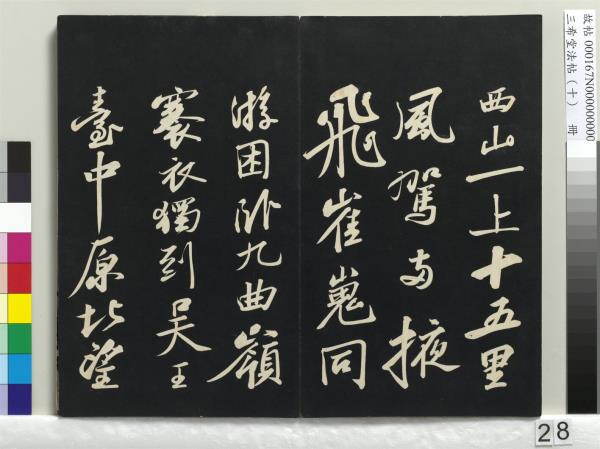 西山一上十五里
風駕兩掖
飛崔嵬同
游困卧九曲嶺
褰衣獨到吳王
臺中原北望
故帖 000167N000000000
三希堂法帖（十） 冊
28